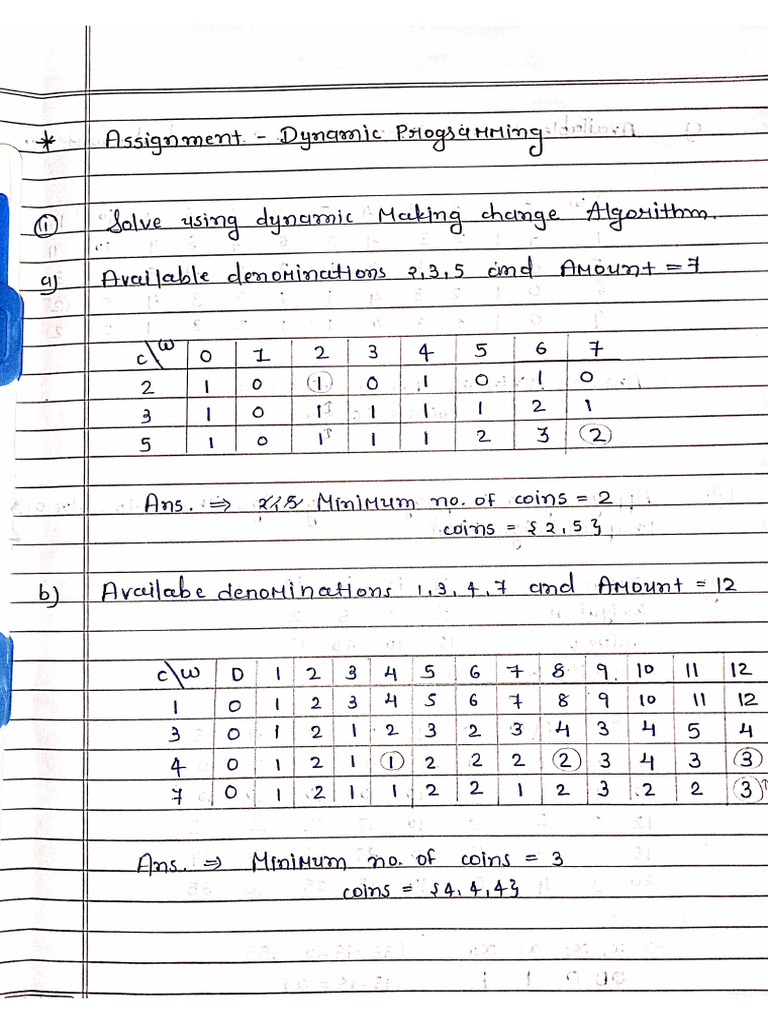 * Assignment - Dynamic Programming
① Solve using dynamic Making change Algorithm.
a) Available denominations 2,3,5 and Amount = 7
c\w 0 1 2 3 4 5 6 7
2 1 0 1 0 1 0 1 0
3 1 0 1↑ 1 1 1 2 1
5 1 0 1↑ 1 1 2 3 2
Ans. ⇒ Minimum no. of coins = 2
coins = {2,5}
b) Availabe denominations 1,3,4,7 and Amount = 12
c\w 0 1 2 3 4 5 6 7 8 9 10 11 12
1 0 1 2 3 4 5 6 7 8 9 10 11 12
3 0 1 2 1 2 3 2 3 4 3 4 5 4
4 0 1 2 1 1 2 2 2 2 3 4 3 3
7 0 1 2 1 1 2 2 1 2 3 2 2 3↑
Ans. ⇒ Minimum no. of coins = 3
coins = {4,4,4}